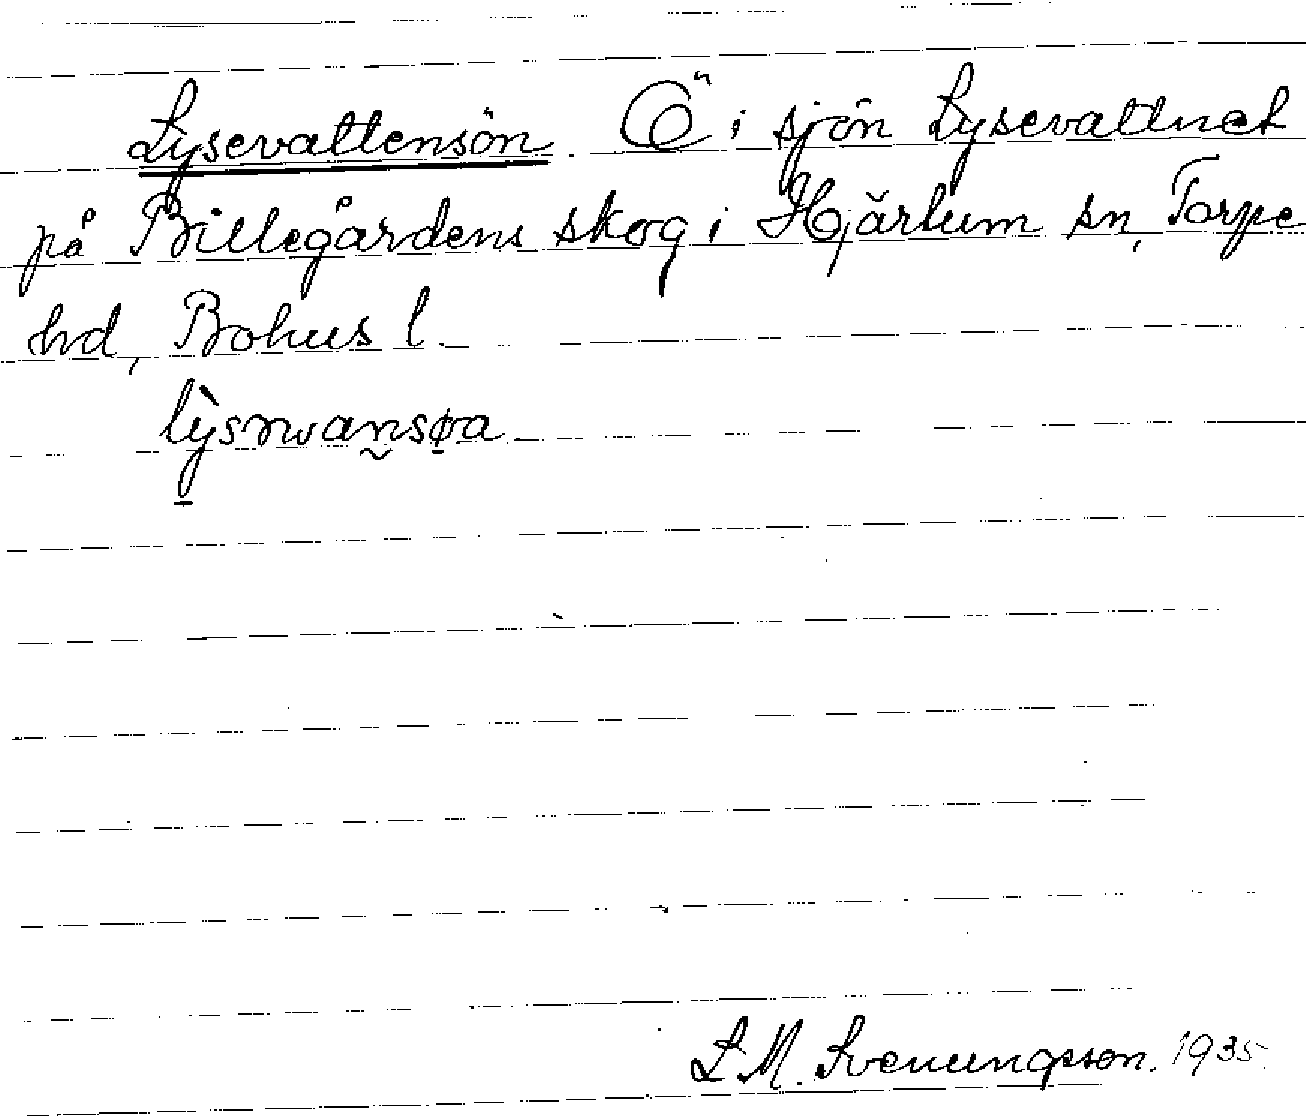 Lysevattensön. Ö i sjön Lysevattnet
på Billegårdens skog i Hjärtum sn, Torpe
hd, Bohus l.
L. M. Svenungsson. 1935.